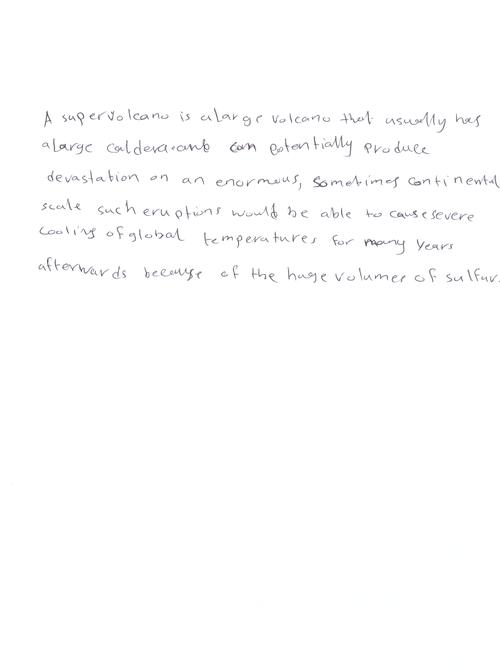 A supervolcano is a large volcano that usually has
a large caldera and can potentially produce
devastation on an enormous, sometimes continental
scale such eruptions would be able to cause severe
cooling of global temperatures for many years
afterwards because of the huge volumes of sulfur.